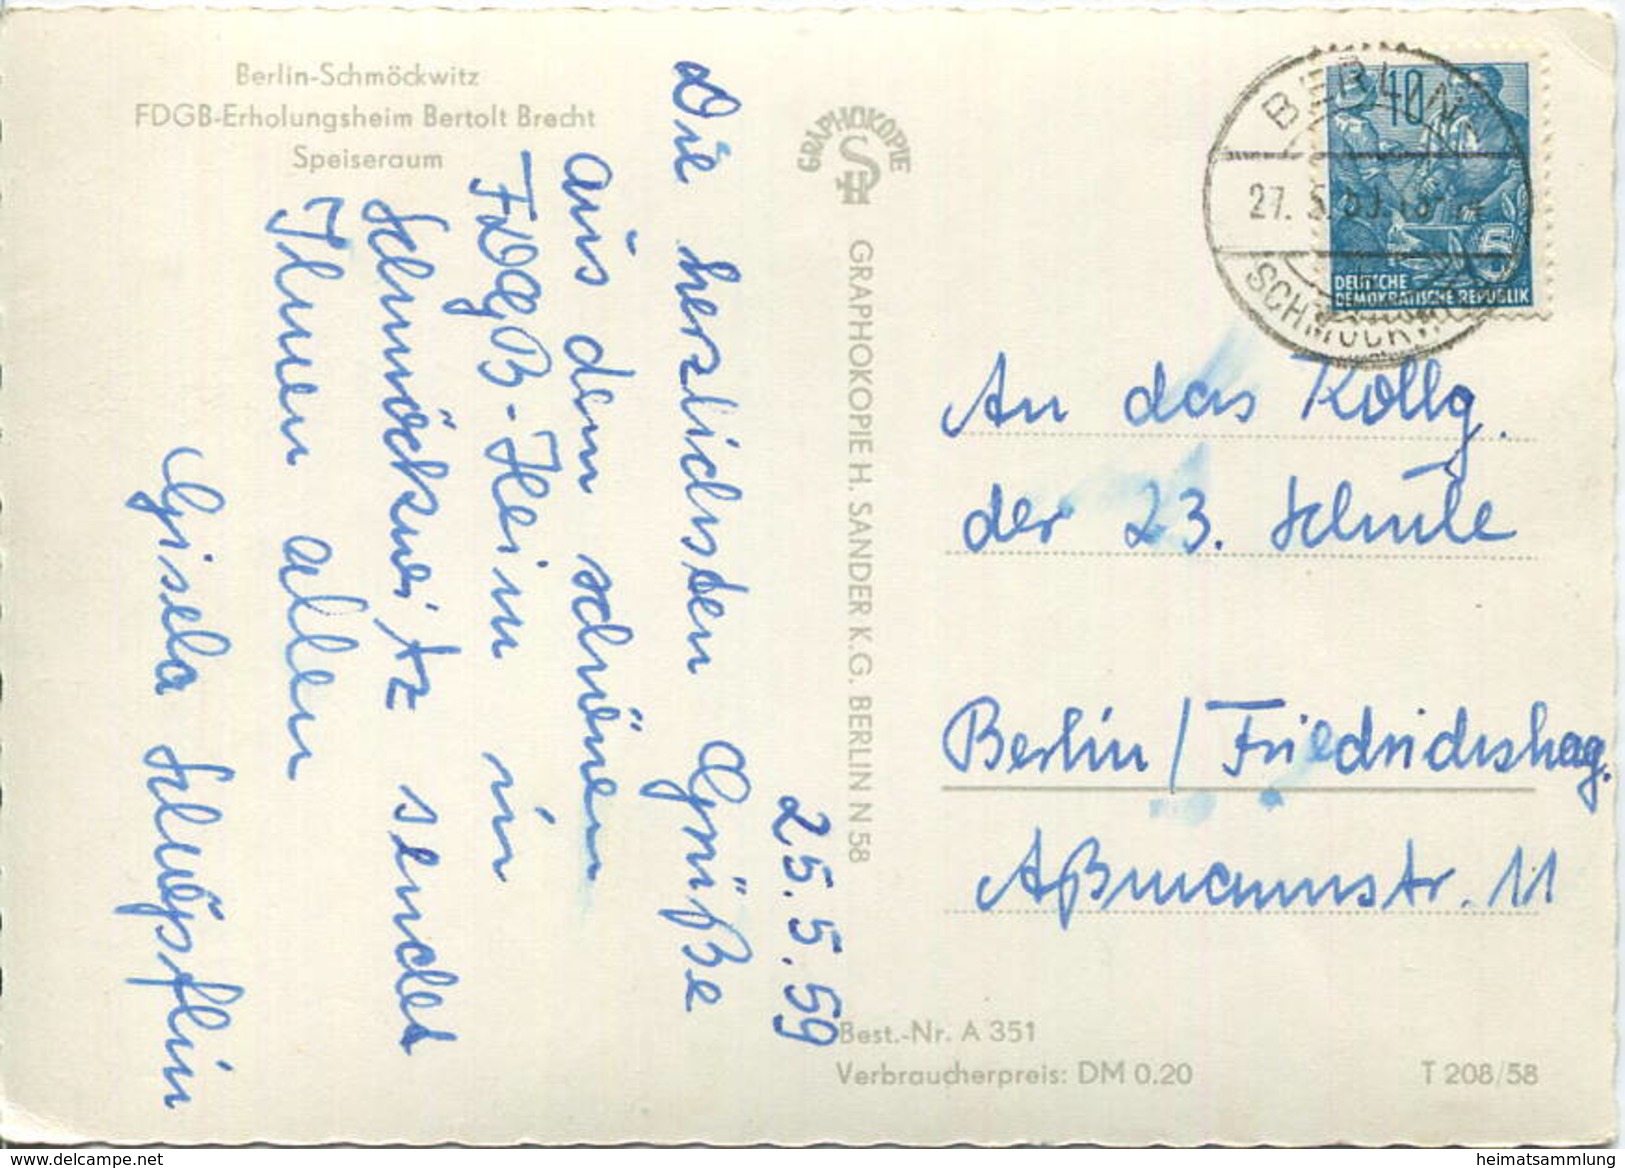 Berlin-Schmöckwitz
FDGB-Erholungsheim Bertolt Brecht
Speiseraum
25.5.59
Die herzlichsten Grüße
aus dem schönen
FDGB-Heim in
Schmöckwitz sendet
Ihnen allen
Gisela
GRAPHOKOPIE
GRAPHOKOPIE H. SANDER K.G. BERLIN N 58
BERLIN
27. 5.
SCHMÖCKWITZ
10
5
DEUTSCHE
DEMOKRATISCHE REPUBLIK
An das Kollg.
der 23. Schule
Berlin / Friedrichshag.
Aßmannstr. 11
Best.-Nr. A 351
Verbraucherpreis: DM 0.20
T 208/58
www.delcampe.net
heimatsammlung